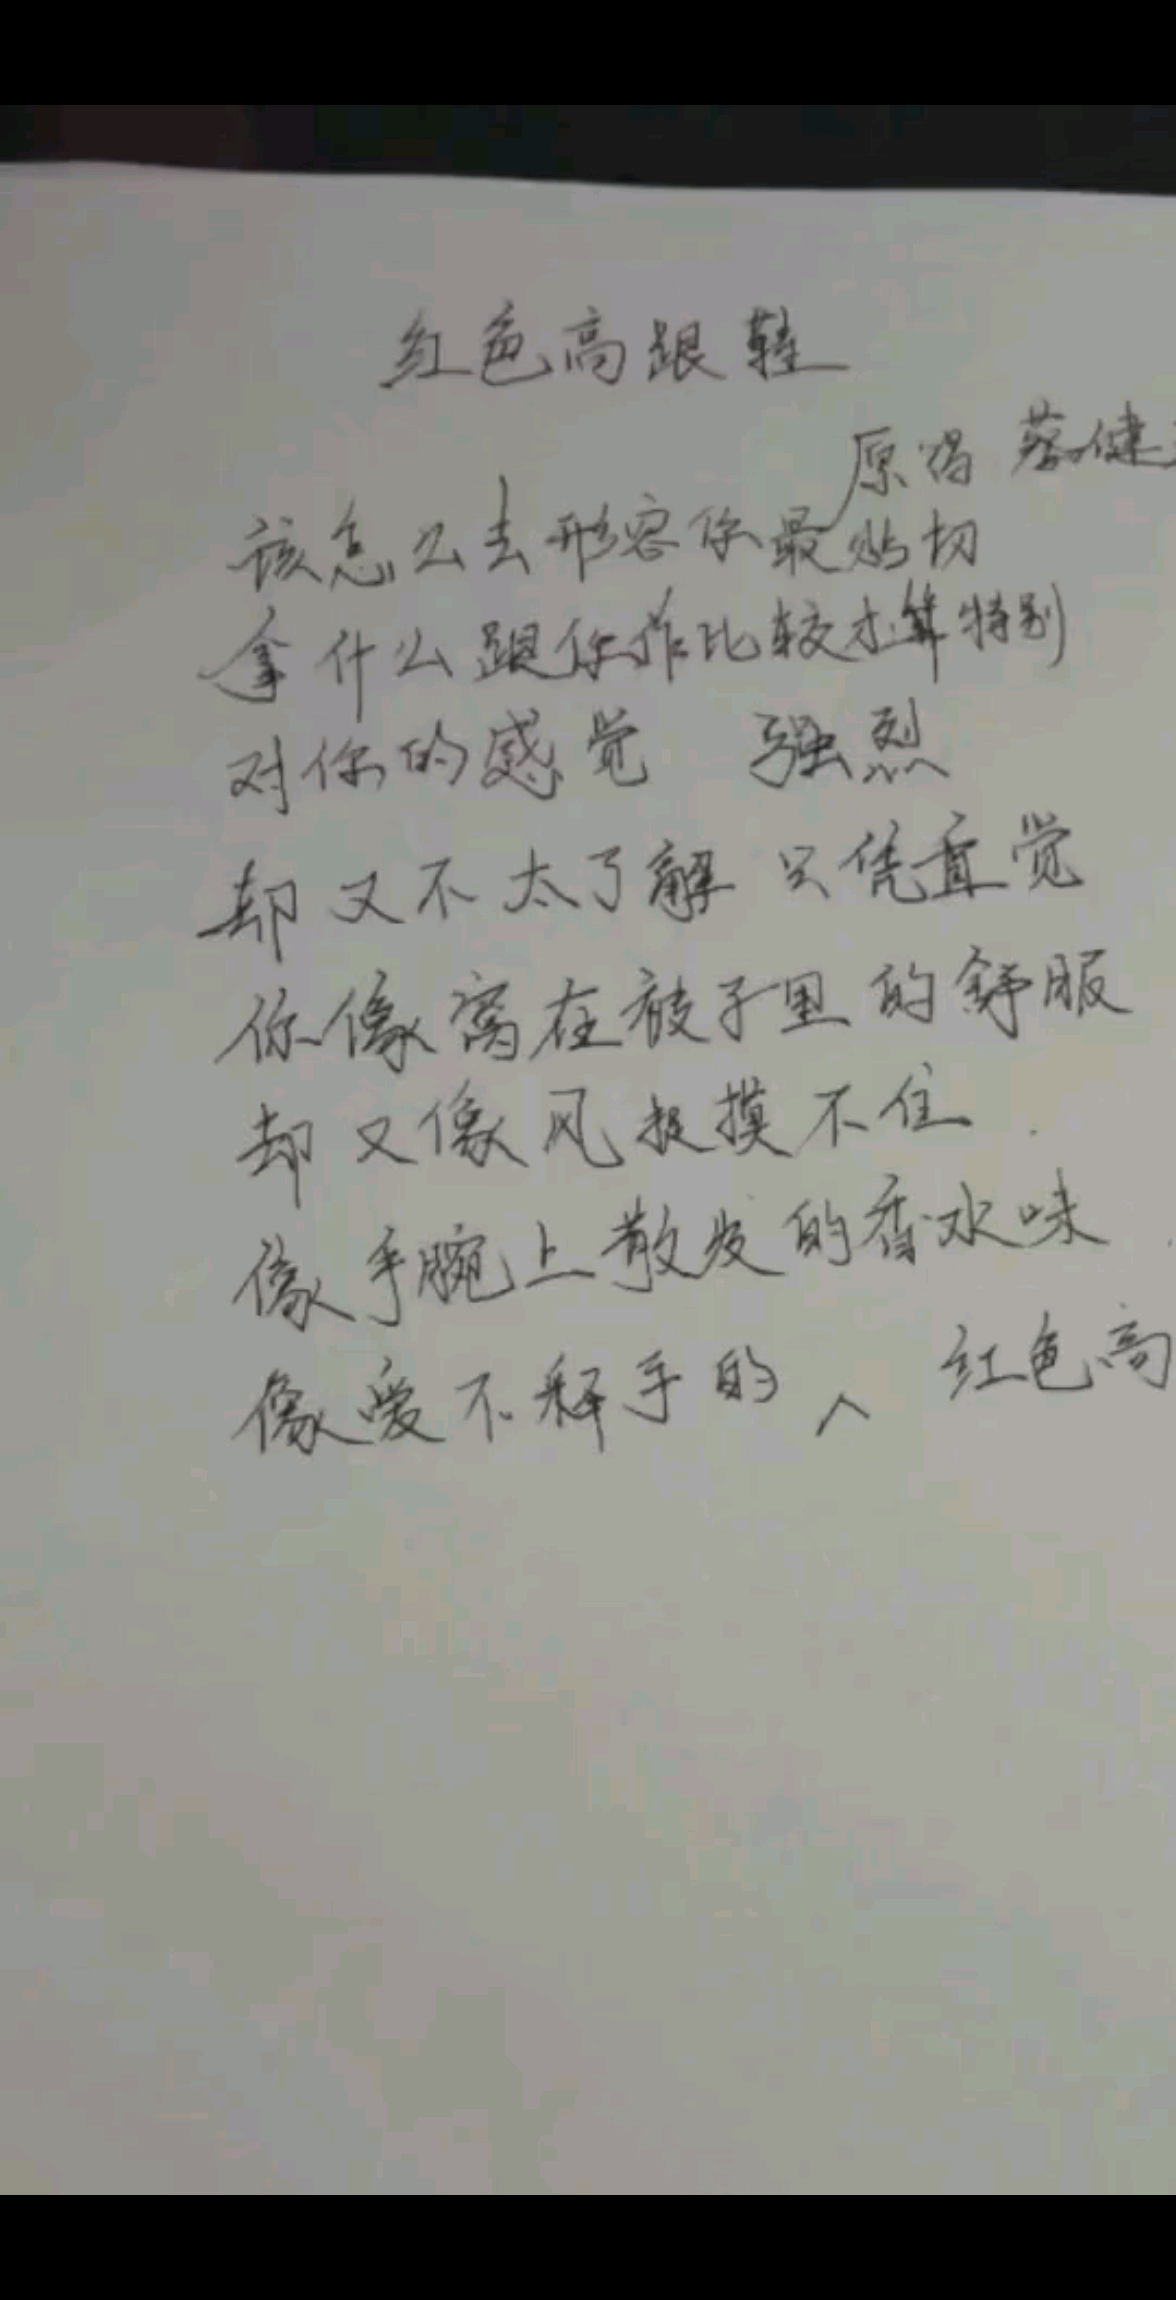 红色高跟鞋
原唱 蔡健
该怎么去形容你最贴切
拿什么跟你作比较才算特别
对你的感觉 强烈
却又不太了解 只凭直觉
你像窝在被子里的舒服
却又像风捉摸不住
像手腕上散发的香水味
像爱不释手的 ^ 红色高